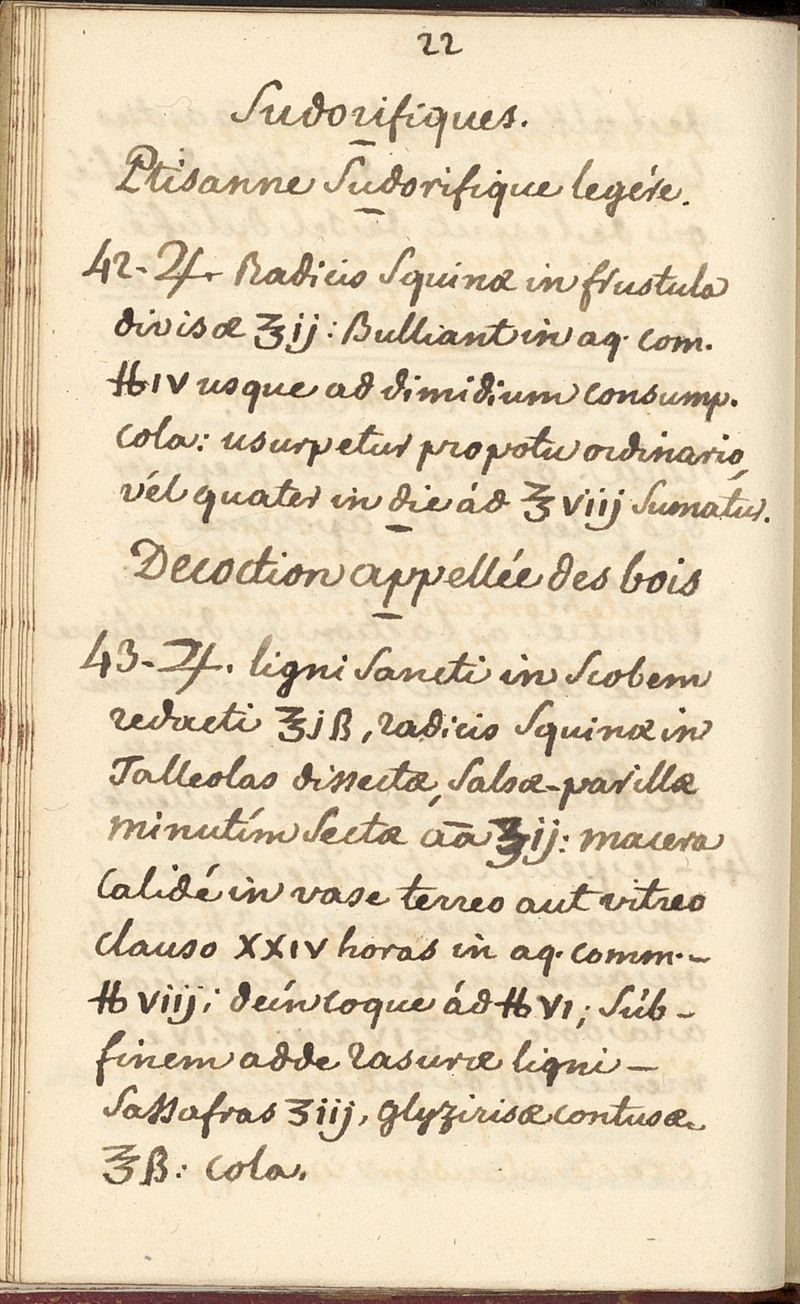 22
Sudorifiques.
Ptisanne Sudorifique legére.
42-♃. Radicis Squinæ in frustula
divisæ ℥ij: Bulliant in aq. com.
℔IV usque ad dimidium consump.
cola: usurpetur pro potu ordinario,
vél quater in die ád ℥viij Sumatúr.
Decoction appellée des bois
43-♃. ligni Sancti in Scobem
redacti ℥jß, radicis Squinæ in
Talleolas dissectæ, Salsæ-parillæ
minutím Sectæ aā ℥ij: macera
Calidé in vase terreo aut vitreo
clauso XXIV horas in aq. comm.-
℔viij; deín coque ád ℔VI; Súb-
finem adde rasuræ ligni-
Sassafras ʒiij, glyzirisæ contusæ
℥ß: cola.